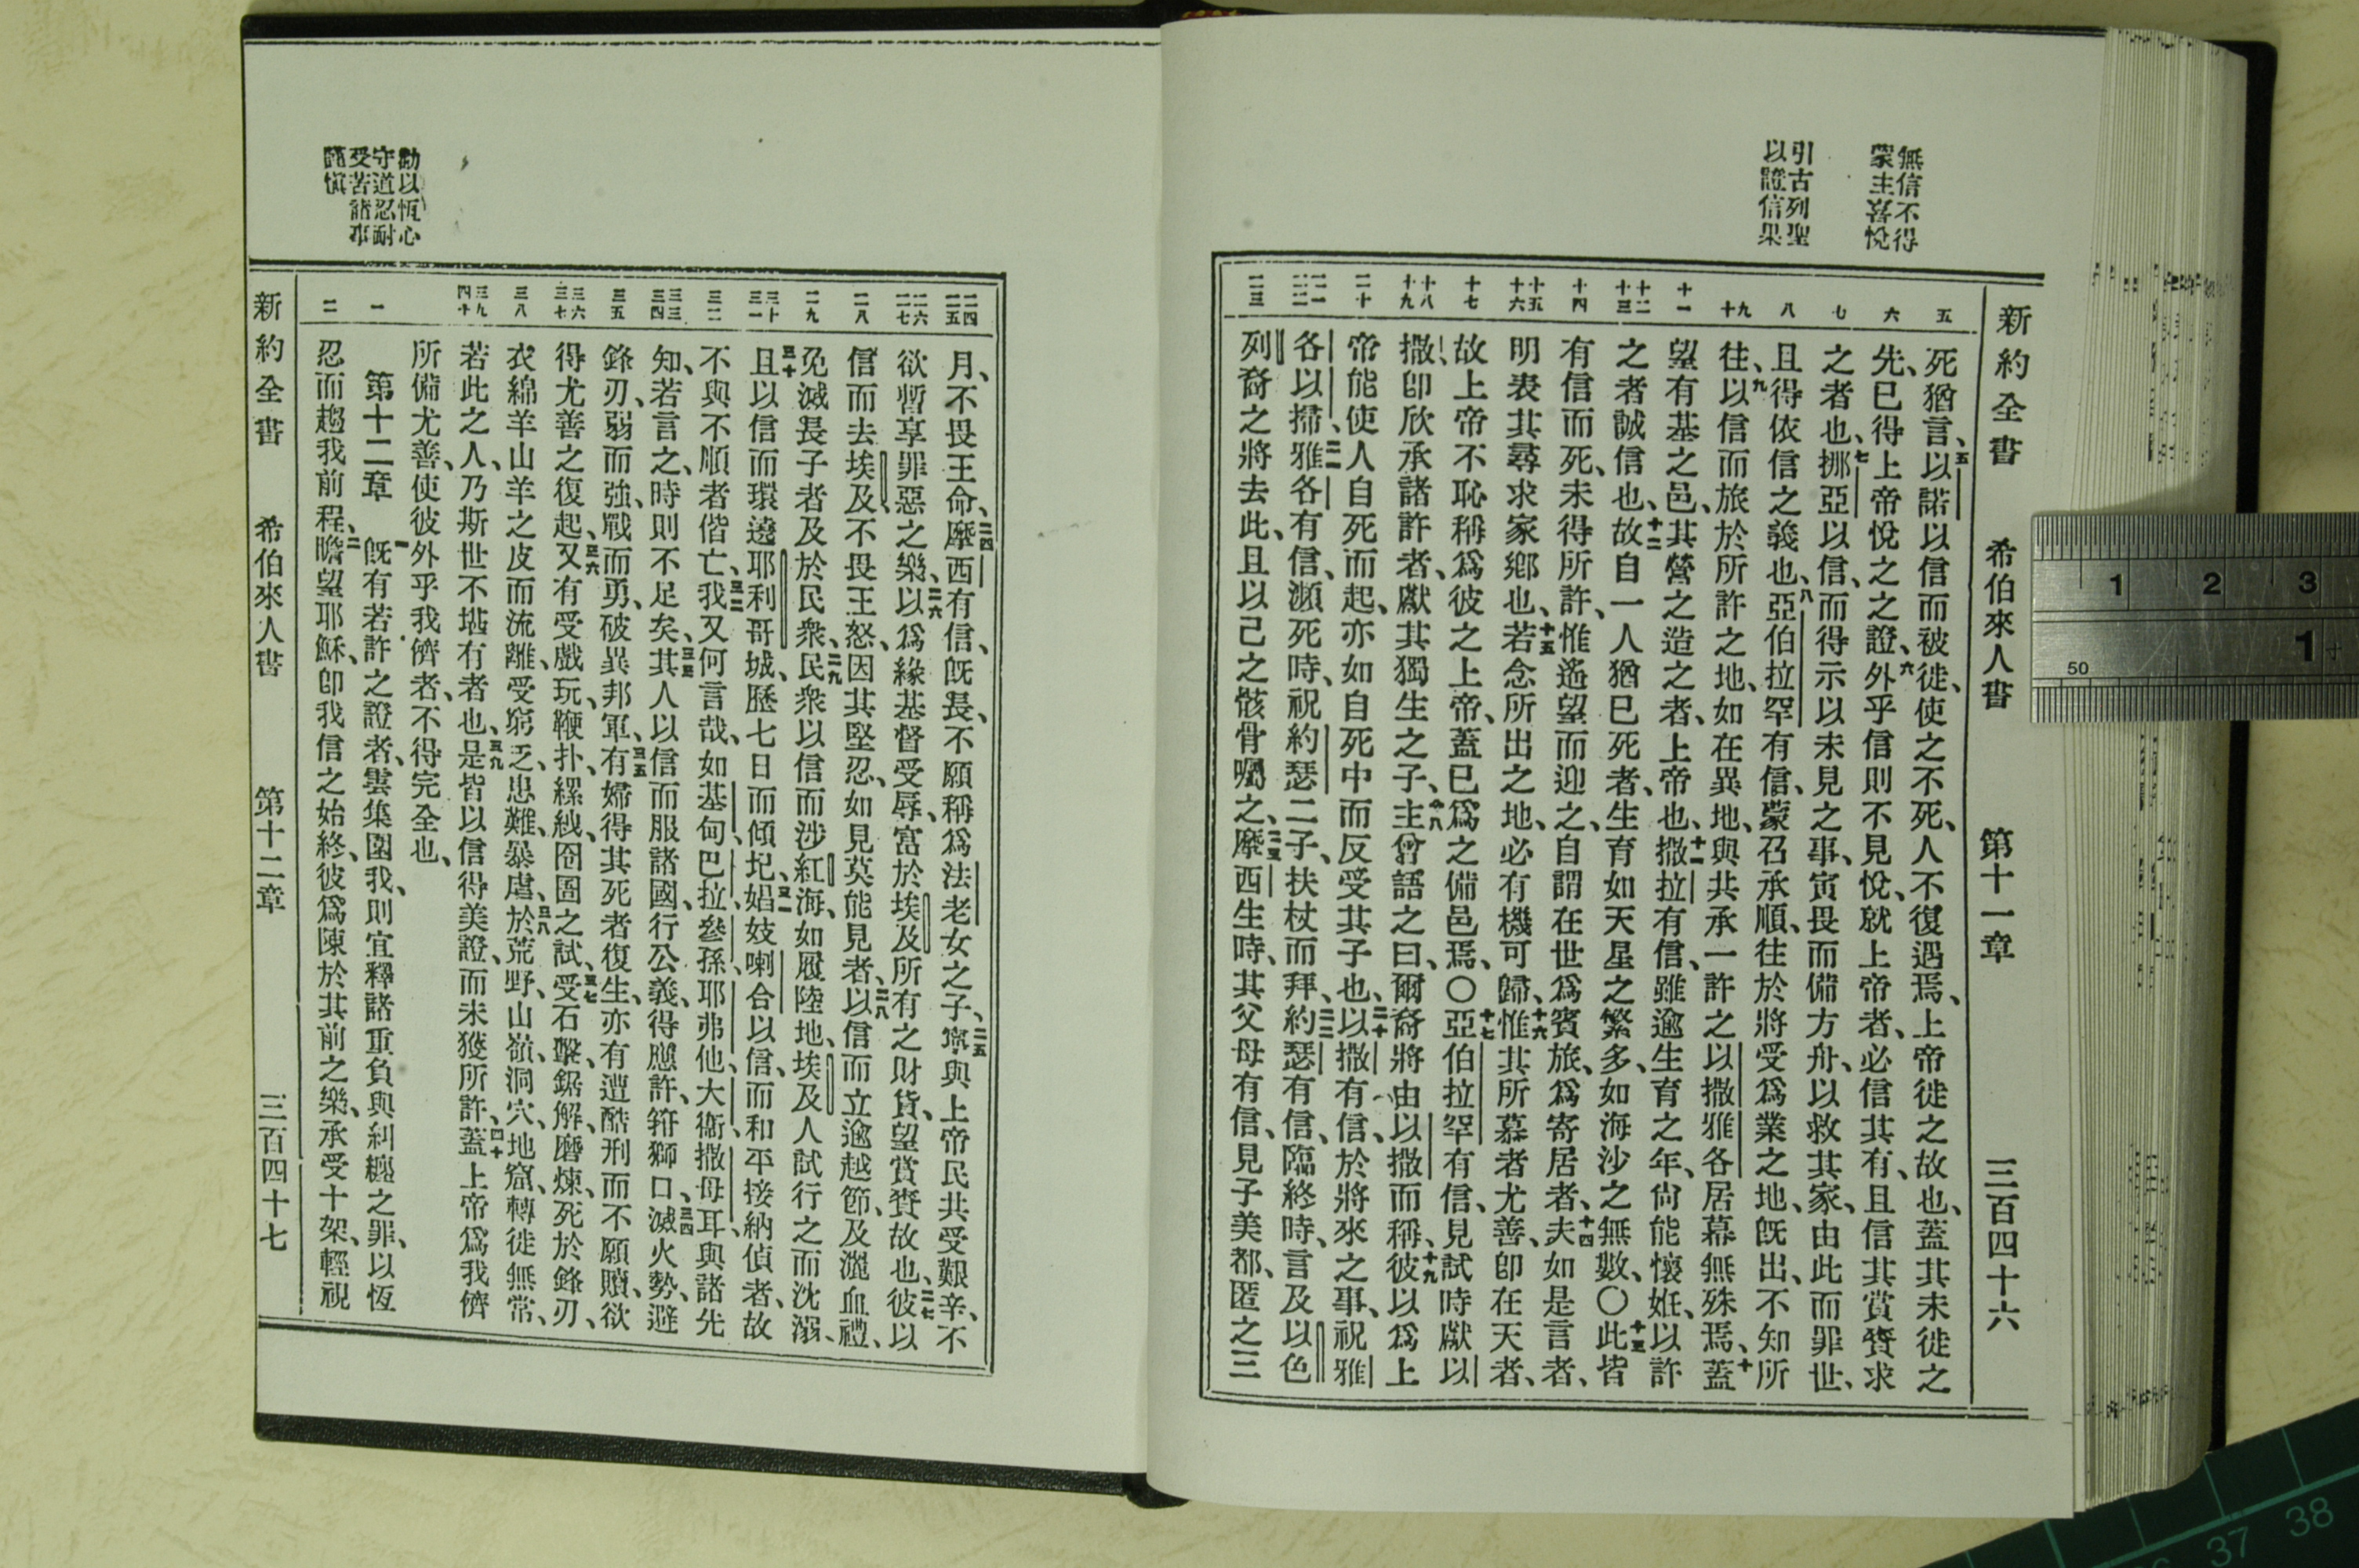 無信不得
蒙主喜悅
引古列聖
以證信果
新約全書 希伯來人書 第十一章 三百四十六
五 六 七 八 九 十 十一 十二 十三 十四 十五 十六 十七 十八 十九 二十 二一 二二 二三
死猶言、五以諾以信而被徙、使之不死、人不復遇焉、上帝徙之故也、蓋其未徙之
先、已得上帝悅之之證、六外乎信則不見悅、就上帝者、必信其有、且信其賞賚求
之者也、七挪亞以信、而得示以未見之事、寅畏而備方舟、以救其家、由此而罪世、
且得依信之義也、八亞伯拉罕有信、蒙召承順、往於將受爲業之地、旣出、不知所
往、九以信而旅於所許之地、如在異地、與共承一許之以撒雅各居幕無殊焉、十蓋
望有基之邑、其營之造之者、上帝也、十一撒拉有信、雖逾生育之年、尙能懷姙、以許
之者誠信也、十二故自一人猶已死者、生育如天星之繁多、如海沙之無數、〇十三此皆
有信而死、未得所許、惟遙望而迎之、自謂在世爲賓旅、爲寄居者、十四夫如是言者、
明表其尋求家鄉也、十五若念所出之地、必有機可歸、十六惟其所慕者尤善、卽在天者、
故上帝不恥稱爲彼之上帝、蓋已爲之備邑焉、〇十七亞伯拉罕有信、見試時獻以
撒、卽欣承諸許者、獻其獨生之子、十八主曾語之曰、爾裔將由以撒而稱、十九彼以爲上
帝能使人自死而起、亦如自死中而反受其子也、二十以撒有信、於將來之事、祝雅
各以掃、二一雅各有信、瀕死時、祝約瑟二子、扶杖而拜、二二約瑟有信、臨終時、言及以色
列裔之將去此、且以己之骸骨囑之、二三摩西生時、其父母有信、見子美都、匿之三
月、不畏王命、二四摩西有信、旣長、不願稱爲法老女之子、二五寧與上帝民共受艱辛、不
欲暫享罪惡之樂、二六以爲緣基督受辱、富於埃及所有之財貨、望賞賚故也、二七彼以
信而去埃及、不畏王怒、因其堅忍、如見莫能見者、二八以信而立逾越節、及灑血禮、
免滅長子者及於民衆、二九民衆以信而涉紅海、如履陸地、埃及人試行之而沈溺、
三十且以信而環遶耶利哥城、歷七日而傾圮、三一娼妓喇合以信、而和平接納偵者、故
不與不順者偕亡、三二我又何言哉、如基甸、巴拉、參孫、耶弗他、大衞、撒母耳、與諸先
知、若言之、時則不足矣、三三其人以信而服諸國、行公義、得應許、箝獅口、三四滅火勢、避
鋒刃、弱而強、戰而勇、破異邦軍、三五有婦得其死者復生、亦有遭酷刑而不願贖、欲
得尤善之復起、三六又有受戲玩、鞭扑、縲絏、囹圄之試、三七受石擊、鋸解、磨煉、死於鋒刃、
衣綿羊山羊之皮而流離、受窮乏、患難、暴虐、三八於荒野、山嶺、洞穴、地窟、轉徙無常、
若此之人、乃斯世不堪有者也、三九是皆以信得美證、而未獲所許、四十蓋上帝爲我儕
所備尤善、使彼外乎我儕者、不得完全也、
第十二章 一旣有若許之證者、雲集圍我、則宜釋諸重負與糾纏之罪、以恆
忍而趨我前程、二瞻望耶穌、卽我信之始終、彼爲陳於其前之樂、承受十架、輕視
二四 二五 二六 二七 二八 二九 三十 三一 三二 三三 三四 三五 三六 三七 三八 三九 四十 一 二
勸以恆心
守道忍耐
受苦諸事
新約全書 希伯來人書 第十二章 三百四十七
1 2 3
1
50
37 38